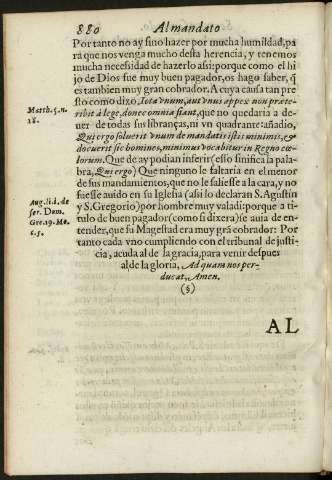 880 Al mandato
Por tanto no ay sino hazer por mucha humildad, pa
ra que nos venga mucho desta herencia, y tenemos
mucha necessidad de hazerlo assi: porque como el hi
jo de Dios fue muy buen pagador, os hago saber, q̃
es tambien muy gran cobrador. A cuya causa tan pre
sto como dixo, Iota vnum, aut vnus appex non præte-
Matth. 5. n.
18.
ribit à lege, donec omnia fiant, que no quedaria a de-
uer de todas sus libranças, ni vn quadrante: añadio,
Qui ergo soluerit vnum de mandatis istis minimis, &
docuerit sic homines, minimus vocabitur in Regno cœ-
lorum. Que de ay podian inferir (esso sinifica la pala-
bra, Qui ergo) Que ninguno le faltaria en el menor
de sus mandamientos, que no le saliesse a la cara, y no
fuesse auido en su Iglesia (assi lo declaran S. Agustin
Aug. li. 1. de
ser. Dom.
Gre. 19. Mo.
c. 5.
y S. Gregorio) por hombre muy valadi: porque a ti-
tulo de buen pagador (como si dixera) se auia de en-
tender, que su Magestad era muy grã cobrador: Por
tanto cada vno cumpliendo con el tribunal de justi-
cia, acuda al de la gracia, para venir despues
al de la gloria, Ad quam nos per-
ducat, Amen.
(§)
AL